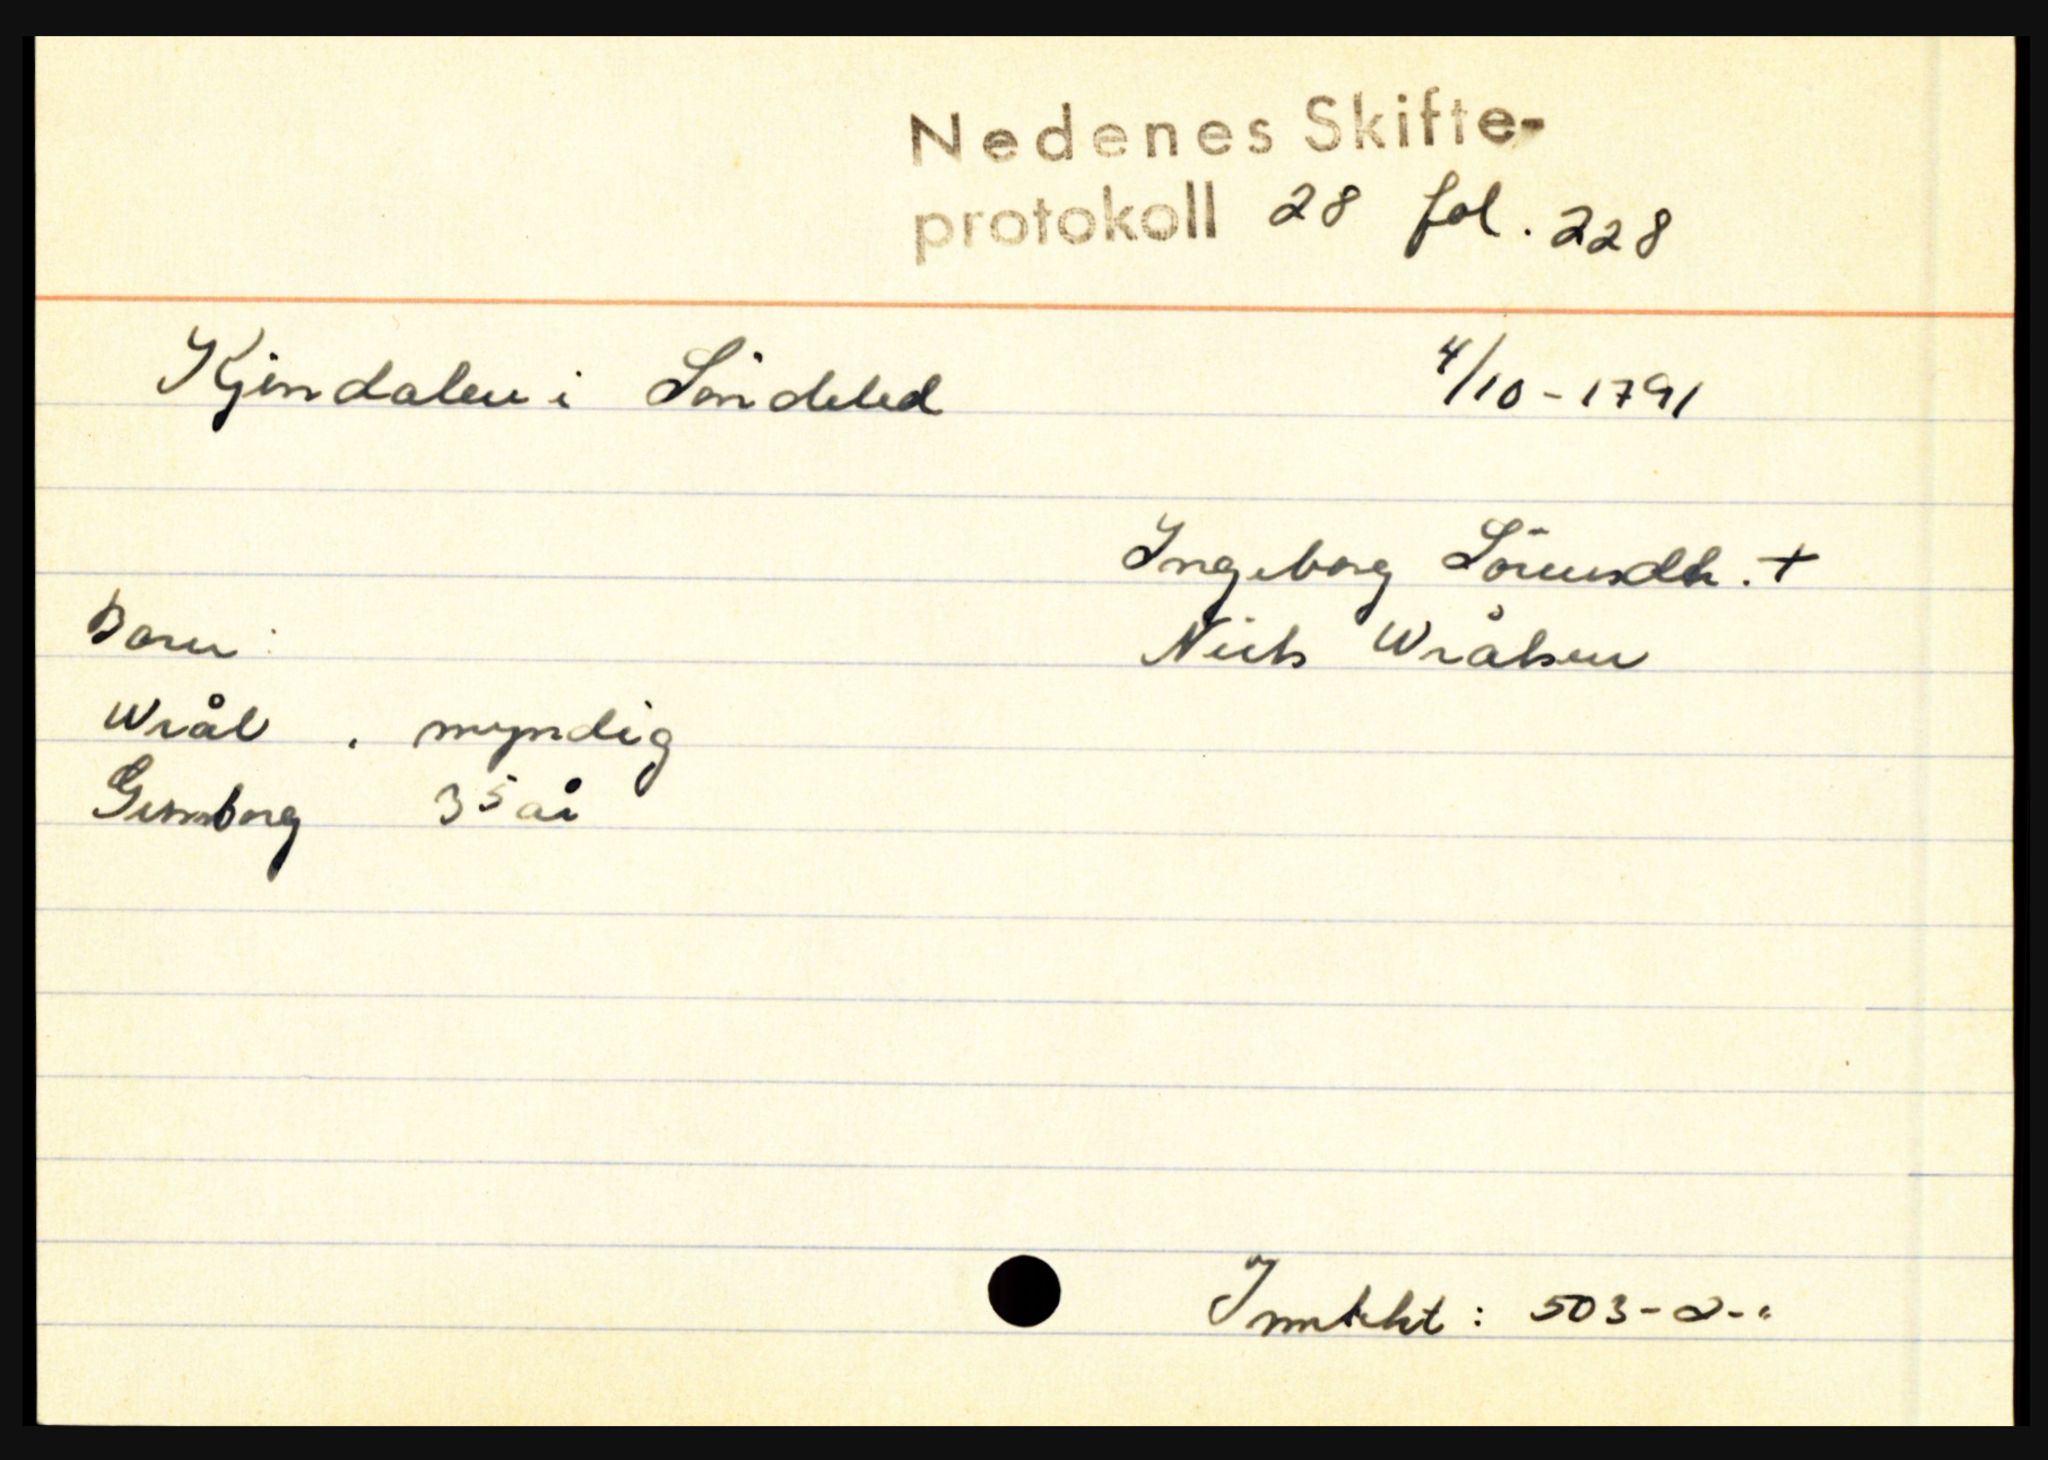 Nedenes Skifte-
protokoll 28 fol. 228
Kjendalen i Söndeled 4/10-1791
Ingeborg Sörensdtr. +
Barn: Niels Wrålsen
Wrål . myndig
Gunborg 35 år
Inntekt: 503-2-"